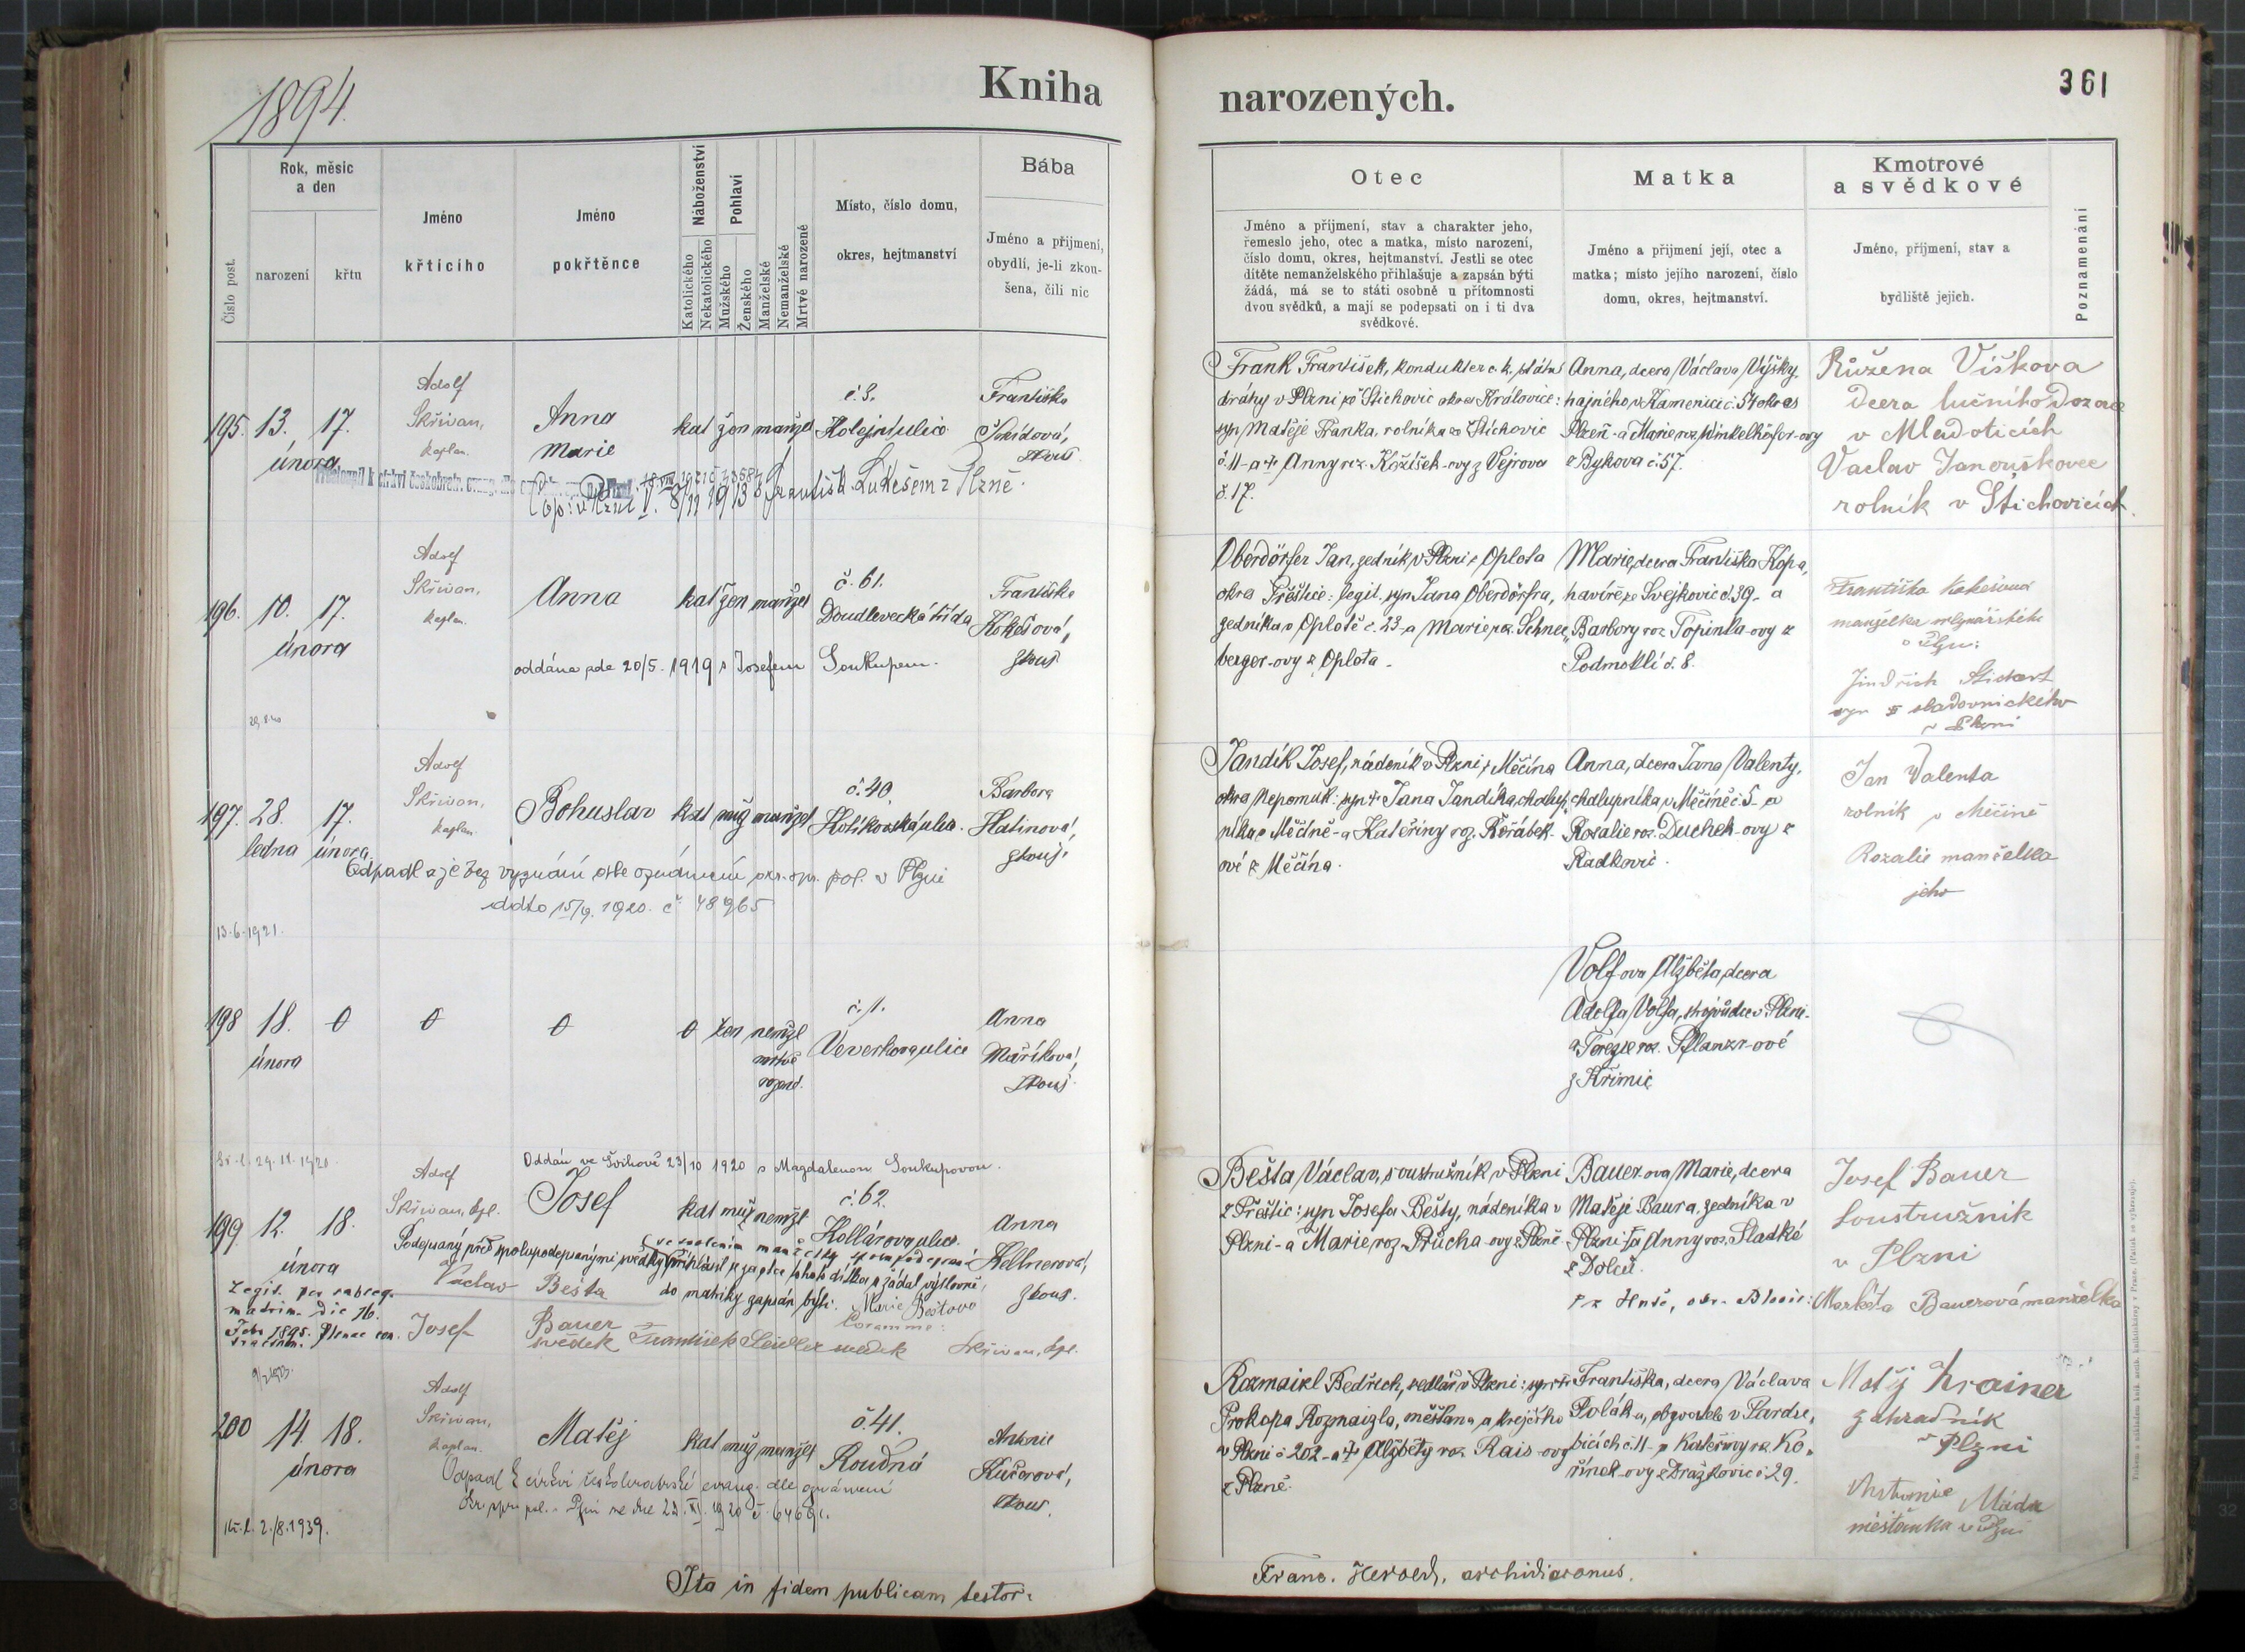 1894.
Kniha
narozených.
361
Číslo post.
Rok, měsíc
a den
narození
křtu
Jméno
křtícího
Jméno
pokřtěnce
Náboženství
Katolického
Nekatolického
Pohlaví
Mužského
Ženského
Manželské
Nemanželské
Mrtvě narozené
Místo, číslo domu,
okres, hejtmanství
Bába
Jméno a příjmení,
obydlí, je-li zkou-
šena, čili nic
Otec
Jméno a příjmení, stav a charakter jeho,
řemeslo jeho, otec a matka, místo narození,
číslo domu, okres, hejtmanství. Jestli se otec
dítěte nemanželského přihlašuje a zapsán býti
žádá, má se to státi osobně u přítomnosti
dvou svědků, a mají se podepsati on i ti dva
svědkové.
Matka
Jméno a příjmení její, otec a
matka; místo jejího narození, číslo
domu, okres, hejtmanství.
Kmotrové
a svědkové
Jméno, příjmení, stav a
bydliště jejich.
Poznamenání
195. 13. 17.
února
Adolf
Skřivan,
kaplan.
Anna
Marie
kat žen manžel
č. 3.
Kolejní ulice
Františka
Šmídová,
zkouš.
8/11 1913 s František Lukešem z Plzně.
Frank František, kondukter c. k. státní
dráhy v Plzni ze Stichovic okres Královice:
syn Matěje Franka, rolníka ze Stichovic
č. 11 - a † Anny roz. Kožíšek-ovy z Vejrova
č. 17.
Anna, dcera Václava Výšky,
hajného v Kamenici č. 54 okres
Plzeň - a Marie roz. Winkelhöfer-ovy
z Bykova č. 57.
Růžena Víškova
dcera lučního dozorce
v Mladoticích
Vaclav Janouškovec
rolník v Stichovicích.
196. 10. 17.
února
Adolf
Skřivan,
kaplan.
Anna
kat žen manžel
č. 61.
Doudlevecká třída
Františka
Kokešová,
zkouš
oddána zde 20/5. 1919 s Josefem Soukupem.
Oberdörfer Jan, zedník v Plzni z Oplota
okres Přeštice: legit. syn Jana Oberdörfra,
zedníka v Oplotě č. 23 - a Marie roz. Schnee-
berger-ovy z Oplota.
Marie, dcera Františka Kopa,
havíře ze Svejkovic č. 39 - a
Barbory roz. Topinka-ovy z
Podmoklí č. 8.
Františka Kokešová
manželka mlynářského
v Plzni:
Jindřich Stickert
syn sladovnického
v Plzni
197. 28. 17.
ledna února
Adolf
Skřivan,
kaplan.
Bohuslav
kat muž manžel
č. 40.
Kotíkovská ulice.
Barbora
Hatinová,
zkouš.
Odpadl a je bez vyznání dle oznámení okr. spr. pol. v Plzni
ddto 15/9. 1920. č. 48965
13.6.1921.
Jandík Josef, nádeník v Plzni z Měčína
okres Nepomuk: syn † Jana Jandíka, chalup-
níka v Měčíně - a Kateřiny roz. Řeřábek-
ové z Měčína.
Anna, dcera Jana Valenty,
chalupníka v Měčíně č. 5 - a
Rosalie roz. Duchek-ovy z
Radkovic.
Jan Valenta
rolník v Měčíně
Rozalie manželka
jeho
198 18. 0 0 0 0 žen nemžl
února
mrtvě
č. 1.
Veverkova ulice
Anna
Maříková,
zkouš.
Volfova Alžběta, dcera
Adolfa Volfa, strojvůdce v Plzni -
a Terezie roz. Pflanzr-ové
z Křimic
Oddán ve Švihově 23/10 1920 s Magdalenou Soukupovou.
199 12. 18.
února
Adolf
Skřivan, kpl.
Josef
kat muž nemžl
č. 62.
Kollárova ulice.
Anna
Kellnerová,
zkouš.
Podepsaný před spolupodepsanými svědky přihlásil se za otce tohoto dítka a žádal výslovně,
do matriky zapsán býti.
Václav Bešta
Marie Beštova
Josef Bauer
svědek
František Seidler svědek
Coram me:
Skřivan, kpl.
Legit. per subseq.
matrim. die 16.
Febr. 1895. Plznae con-
tractum.
Bešta Václav, soustružník v Plzni
z Přeštic: syn Josefa Bešty, nádeníka v
Plzni - a Marie roz. Průcha-ovy z Plzně
Bauer-ova Marie, dcera
Matěje Baura, zedníka v
Plzni - a Anny roz. Sladké
z Dolců.
Josef Bauer
Soustružník
v Plzni
Markéta Bauerová manželka
200 14. 18.
února
Adolf
Skřivan,
kaplan.
Matěj
kat muž manžel
č. 41.
Roudná
Antonie
Kučerová,
zkouš.
Odpadl k církvi českobratrské evang. dle oznámení
2./8.1939.
Rozmaizl Bedřich, sedlář v Plzni: syn †
Prokopa Rozmaizla, měšťana a krejčího
v Plzni č. 202 - a † Alžběty roz. Rais-ovy
z Plzně.
Františka, dcera Václava
Poláka, obyvatele v Pardu-
bicích č. 11 - a Kateřiny roz. Ko-
řínek-ovy z Dražkovic č. 29.
Matěj Krainer
zahradník
v Plzni
Antonie Máda
měšťanka v Plzni
Ita in fidem publicam testor:
Franc. Herold, archidiaconus.